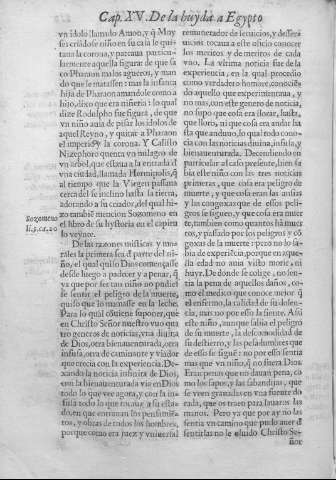 Cap. XV. De la huyda a Egypto
vn idolo llamado Amon, y q̃ Moy
ses criãdose niño en su casa le quita
taua la corona, y parecia particu-
larmente aquella figurar de que sa
co Pharaon malos agueros, y man-
do que le matassen: mas la infanta
hija de Pharaon amandole como a
hijo, dixo que era niñeria: lo qual
dize Rodulpho fue figura, de que
vn niño auia de pisar los idolos de
aquel Reyno, y quitar a Pharaon
el imperio, y la corona. Y Calisto
Nizephoro cuenta vn milagro de
vn arbol, que estaua a la entrada d̃
vna ciudad, llamada Hermipolis, q̃
al tiempo que la Virgen passaua
cerca del se inclino hasta la tierra,
adorando a su criador, del qual hi-
zo tambiẽ mencion Sozomeno en
el libro de su hystoria en el capitu
lo veynte.
Sozomeno
li.5.ca.20
De las razones misticas y mo-
rales la primera fue, d̃ parte del ni-
ño, el qual quiso Dios començasse
desde luego a padecer y penar, q̃
ya que por ser tan niño no pudiel
se sentir el peligro de la muerte,
quiso que lo mamasse en la leche.
Para lo qual cõuiene suponer, que
en Christo Señor nuestro vuo qua
tro generos de noticias, vna diuina
de Dios, otra bienauenturada, otra
infusa, otra de caminante y viador
que crecia con la experiencia. De-
xando la noticia infinita de Dios,
con la bienauenturada vio en Dios
todo lo que vee agora, y con la in-
fusa todo lo que tocaua a su esta-
do, en que entrauan los pensamiẽ-
tos, y obras de todos los hombres,
porque como era juez y vniuersal
remunerador de seruicios, y desser-
uicios: tocaua a este oficio conocer
los meritos y demeritos de cada
vno. La vltima noticia fue de la
experiencia, en la qual procedio
como verdadero hombre, conociẽ-
do aquello que experimentaua, y
no mas, con este genero de noticia,
no supo que cosa era llorar, hasta,
que lloro, ni que cosa era andar ha
sta que anduuo, lo qual todo cono-
cia con las noticias diuina, infusa, y
bienauenturada. Decendiendo en
particular al caso presente, bien sa-
bia este niño con las tres noticias
primeras, que cosa era peligro de
muerte, y que cosa eran las ansias
y las congoxas que de essos peli-
gros se siguen, y que cosa era muer
te, tambien como quantos hã muer-
to, y passado por los peligros y cõ
goxas de la muerte: pero no lo sa-
bia de experiẽcia, porque en aque-
lla edad no auia visto morir, ni
huyr. De dõde se colige, no sen-
tia la pena de aquellos daños, co-
mo el medico que conoce mejor q̃
el enfermo, la calidad de su dolen-
cia, mas no por esso la siente. Assi
este niño, aunque sabia el peligro
de su muerte, la descomodidad de
su destierro, y las pesadumbres que
de esso se sigue: no por esso sentia
mas que vn niño, q̃ no fuera Dios
Eran penas que no dauan pena, co
mo los sapos, y las sabandijas, que
se veen grauadas en vna fuente do
rada, que os traen para lauaros las
manos. Pero ya que por ay no las
sentia vn camino que pudo auer d̃
sentirlas no le oluido Christo Se-
ñor